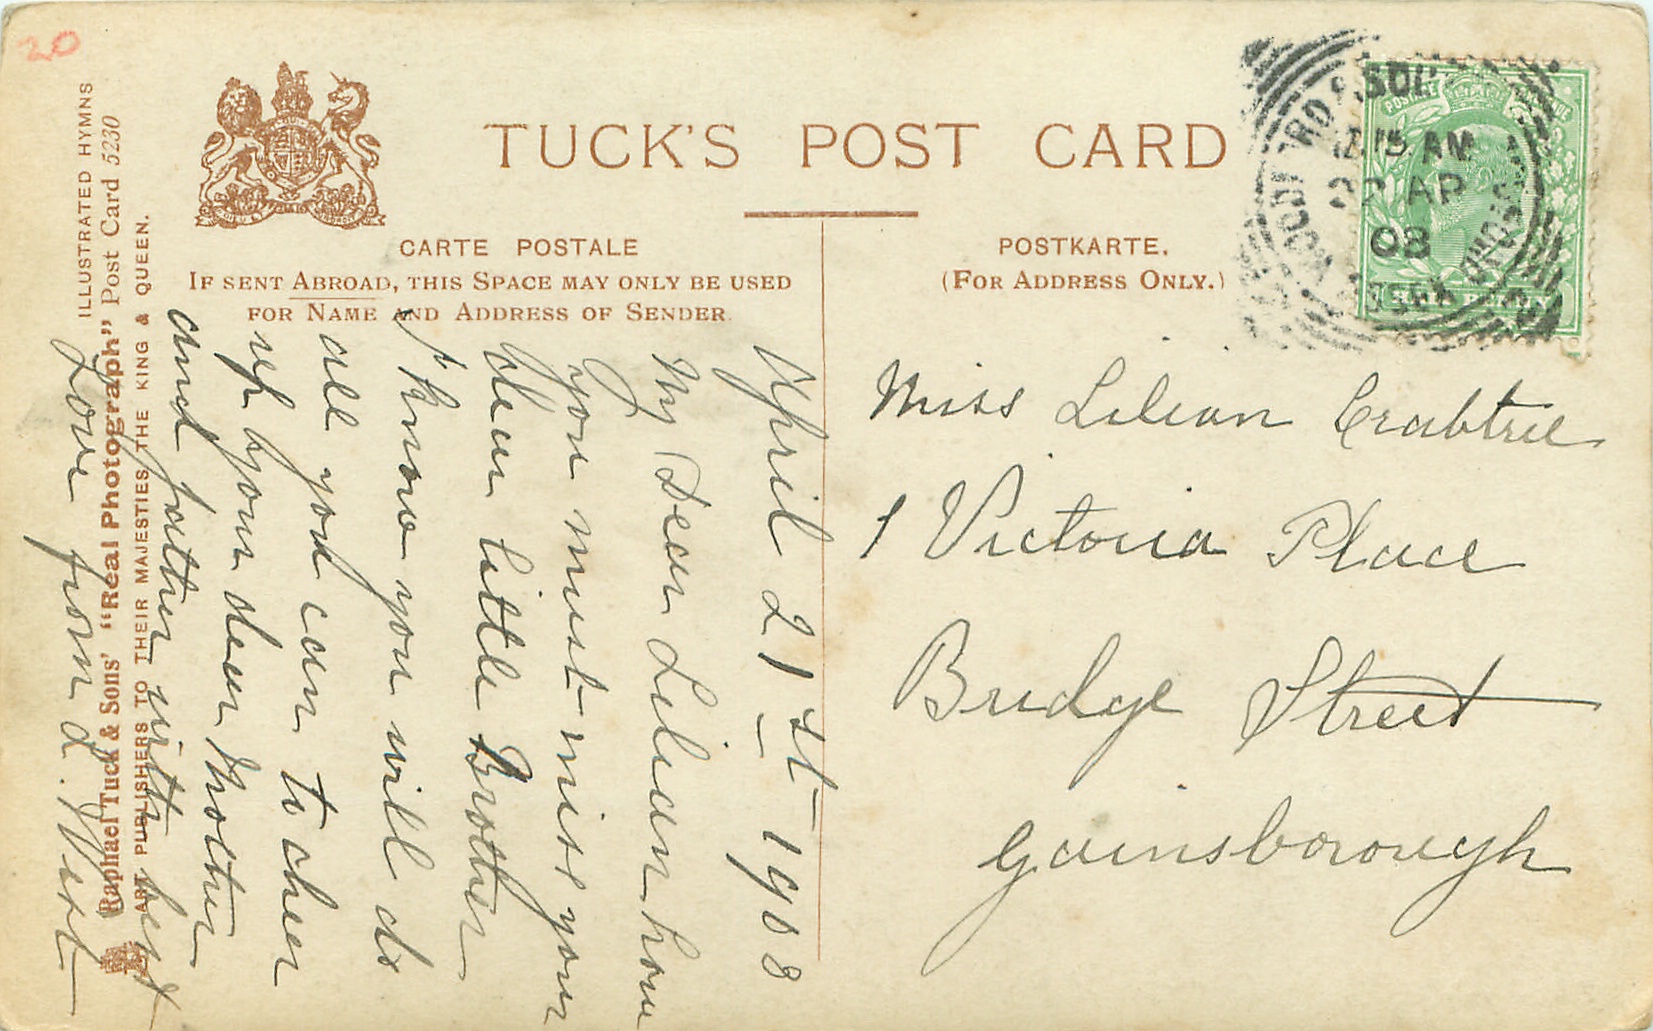 20
TUCK'S POST CARD
CARTE POSTALE
IF SENT ABROAD, THIS SPACE MAY ONLY BE USED
FOR NAME AND ADDRESS OF SENDER
POSTKARTE.
(FOR ADDRESS ONLY.)
ILLUSTRATED HYMNS
Raphael Tuck & Sons' "Real Photograph" Post Card 5230
ART PUBLISHERS TO THEIR MAJESTIES THE KING & QUEEN.
April 21st 1908
My Dear Lilian how
you must miss your
dear little Brother
I know you will do
all you can to cheer
up your dear Mother
and father with best
Love from L. West
POSTAGE
15 AM
AP
08
Miss Lilian Crabtree
1 Victoria Place
Bridge Street
Gainsborough